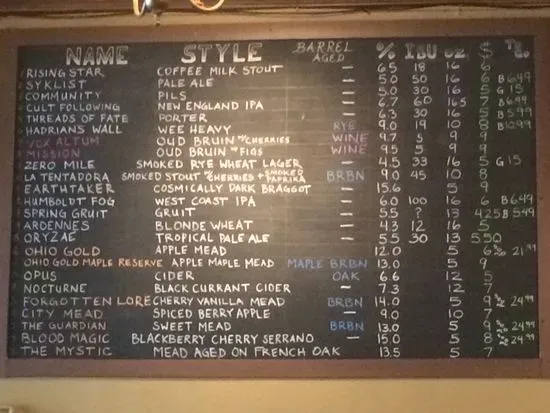 NAME STYLE BARREL AGED % IBU OZ $ TO GO
RISING STAR COFFEE MILK STOUT — 6.5 18 16 6
SYKLIST PALE ALE — 5.0 50 16 6 B 6.49
COMMUNITY PILS — 5.0 30 16 5 G 15
CULT FOLLOWING NEW ENGLAND IPA — 6.7 60 16.5 7 B 6.49
THREADS OF FATE PORTER — 6.3 30 16 5 B 5.99
HADRIANS WALL WEE HEAVY RYE 9.0 19 10 8 B 10.99
VOX ALTUM OUD BRUIN W/ CHERRIES WINE 9 9
MISSION OUD BRUIN W/ FIGS WINE 9.5 5 9 9
ZERO MILE SMOKED RYE WHEAT LAGER — 4.5 33 16 5 G 15
LA TENTADORA SMOKED STOUT W/ CHERRIES + SMOKED PAPRIKA BRBN 9.0 45 10 8
EARTHTAKER COSMICALLY DARK BRAGGOT — 15.6 5 9
HUMBOLDT FOG WEST COAST IPA — 6.0 100 16 6 B 6.49
SPRING GRUIT GRUIT — 5.5 ? 13 4.25 B 5.49
ARDENNES BLONDE WHEAT — 4.3 12 16 5
ORYZAE TROPICAL PALE ALE — 5.5 30 13 5.50
OHIO GOLD APPLE MEAD — 12.0 5 6 21.99
OHIO GOLD MAPLE RESERVE APPLE MAPLE MEAD MAPLE BRBN 13.0 5 9
OPUS CIDER OAK 6.6 12 5
NOCTURNE BLACK CURRANT CIDER — 7.3 12 7
FORGOTTEN LORE CHERRY VANILLA MEAD BRBN 14.0 5 9 24.99
CITY MEAD SPICED BERRY APPLE — 9.0 10 7
THE GUARDIAN SWEET MEAD BRBN 13.0 5 9 24.99
BLOOD MAGIC BLACKBERRY CHERRY SERRANO — 15.0 5 8 24.99
THE MYSTIC MEAD AGED ON FRENCH OAK 13.5 5 7